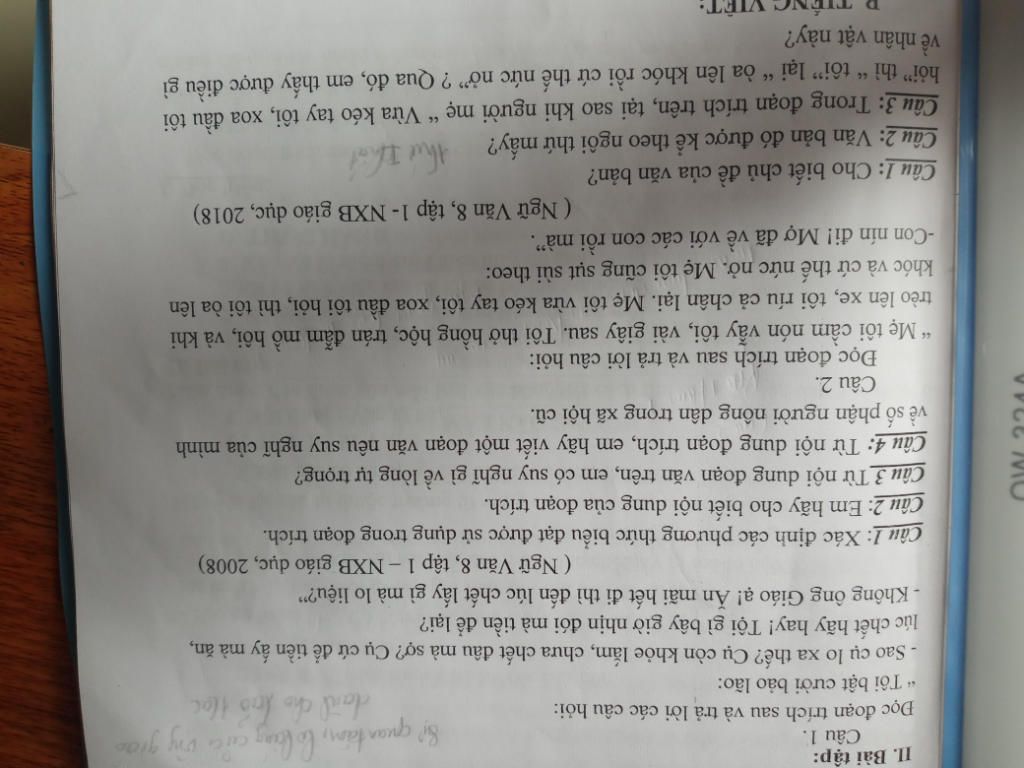 II. Bài tập:
Câu 1.
Sự quan tâm, lo lắng của ông giáo
dành cho lão Hạc
Đọc đoạn trích sau và trả lời các câu hỏi:
“ Tôi bật cười bảo lão:
- Sao cụ lo xa thế? Cụ còn khỏe lắm, chưa chết đâu mà sợ? Cụ cứ để tiền ấy mà ăn,
lúc chết hãy hay! Tội gì bây giờ nhịn đói mà tiền để lại?
- Không ông Giáo ạ! Ăn mãi hết đi thì đến lúc chết lấy gì mà lo liệu?”
( Ngữ Văn 8, tập 1 – NXB giáo dục, 2008)
Câu 1: Xác định các phương thức biểu đạt được sử dụng trong đoạn trích.
Câu 2: Em hãy cho biết nội dung của đoạn trích.
Câu 3 Từ nội dung đoạn văn trên, em có suy nghĩ gì về lòng tự trọng?
Câu 4: Từ nội dung đoạn trích, em hãy viết một đoạn văn nêu suy nghĩ của mình
về số phận người nông dân trong xã hội cũ.
Câu 2.
Đọc đoạn trích sau và trả lời câu hỏi:
“ Mẹ tôi cầm nón vẫy tôi, vài giây sau. Tôi thở hồng hộc, trán đẫm mồ hôi, và khi
trèo lên xe, tôi ríu cả chân lại. Mẹ tôi vừa kéo tay tôi, xoa đầu tôi hỏi, thì tôi òa lên
khóc và cứ thế nức nở. Mẹ tôi cũng sụt sùi theo:
-Con nín đi! Mợ đã về với các con rồi mà”.
( Ngữ Văn 8, tập 1- NXB giáo dục, 2018)
Câu 1: Cho biết chủ đề của văn bản?
Câu 2: Văn bản đó được kể theo ngôi thứ mấy? thứ I nhất
Câu 3: Trong đoạn trích trên, tại sao khi người mẹ “ Vừa kéo tay tôi, xoa đầu tôi
hỏi” thì “ tôi” lại “ òa lên khóc rồi cứ thế nức nở” ? Qua đó, em thấy được điều gì
về nhân vật này?
B. TIẾNG VIỆT: